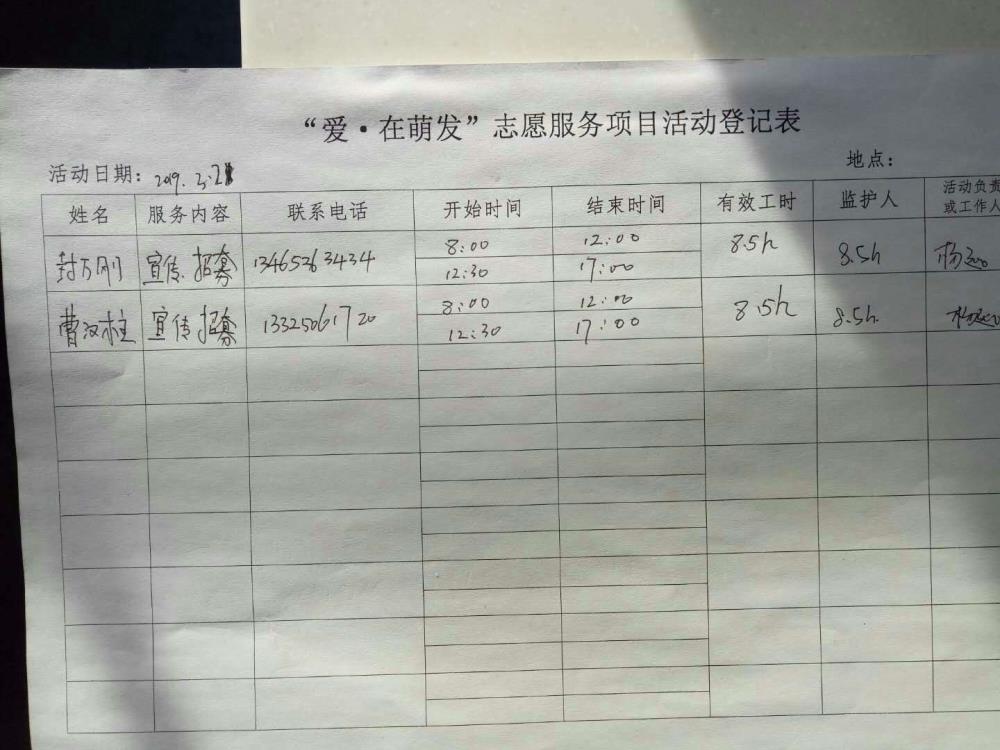 “爱·在萌发”志愿服务项目活动登记表
活动日期： 地点：
姓名 服务内容 联系电话 开始时间 结束时间 有效工时 监护人 活动负责 或工作人
封万刚 宣传.招募 13465263434 8:00 12:00 8.5h 8.5h
12:30 17:00
曹汉柱 宣传招募 13325061720 8:00 12:00 8.5h 8.5h
12:30 17:00